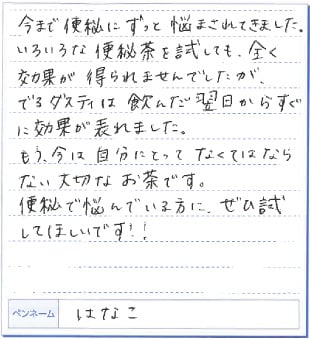 今まで便秘にずっと悩まされてきました。
いろいろな便秘茶を試しても、全く
効果が得られませんでしたが、
でるダスティは飲んだ翌日からすぐ
に効果が表れました。
もう、今は自分にとってなくてはなら
ない大切なお茶です。
便秘で悩んでいる方に、ぜひ試
してほしいです!!
ペンネーム はなこ